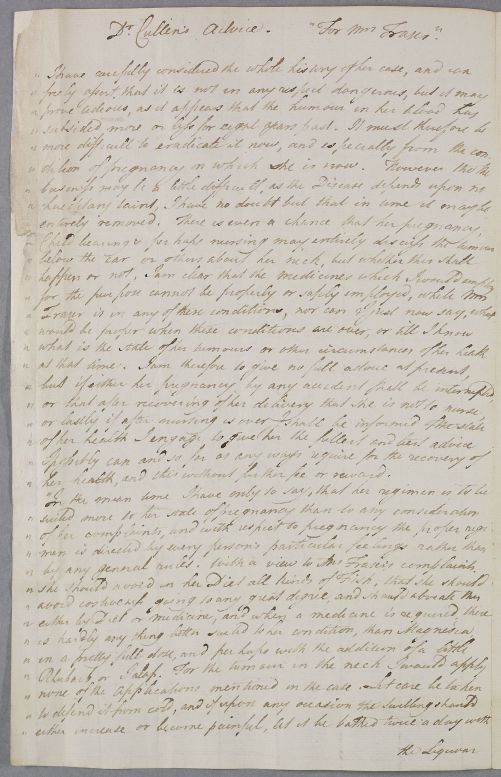 Dr Cullen's Advice. "For Mrs Fraser."
" I have carefully considered the whole history of her case, and can
" freely assert that it is not in any respect dangerous, but it may
" prove tedious, as it appears that the humour in her blood has
" subsisted more or less for eight years past. It must therefore be
" more difficult to eradicate it now, and especially from the con
" dition of pregnancy in which she is now. However tho' the
" business may be a little difficult, as the Disease depends upon no
" hereditary taint, I have no doubt but that in time it may be
" entirely removed. There is even a chance that her pregnancy,
" Child bearing & perhaps nursing may entirely discuss the tumour
" below the Ear or others about her neck, but whether this shall
" happen or not, I am clear that the medicines which I would employ
" for the purpose cannot be properly or safely employed, while Mrs
" Fraser is in any of these conditions, nor can I just now say, what
" would be proper when these conditions are over, or till I know
" what is the state of her humours or other circumstances of her health
" at that time. I am therefore to give no full advice at present,
" but if either her pregnancy by any accident shall be interrupted
" or that after recovering of her delivery that she is not to nurse,
" or lastly if after nursing is over I shall be informed of the state
" of her health I engage to give her the fullest and best advice
" I possibly can and so far as any ways require for the recovery of
" her health, and this without further fee or reward.
" In the mean time I have only to say, that her regimen is to be
" suited more to her state of pregnancy than to any consideration
" of her complaints, and with respect to pregnancy the proper regi
" men is directed by every person's particular feelings rather than
" by any general rules. With a view to Mrs Fraser's complaints,
" she should avoid in her Diet all kinds of Fish, that she should
" avoid costiveness going to any great degree, and should obviate this
" either by Diet or medicine, and when a medicine is required there
" is hardly any thing better suited to her condition, than Magnesia,
" in a pretty full dose, and perhaps with the addition of a little
" Rhubarb or Jalap. For the tumour in the neck I would apply
" none of the applications mentioned in the case. Let care be taken
" to defend it from cold, and if upon any occasion the swelling should
" either increase or become painful, let it be bathed twice a day with
the Liquour